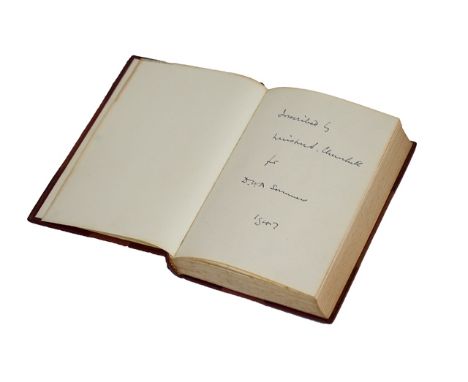 Inscribed by
Winston S. Churchill
for
1947